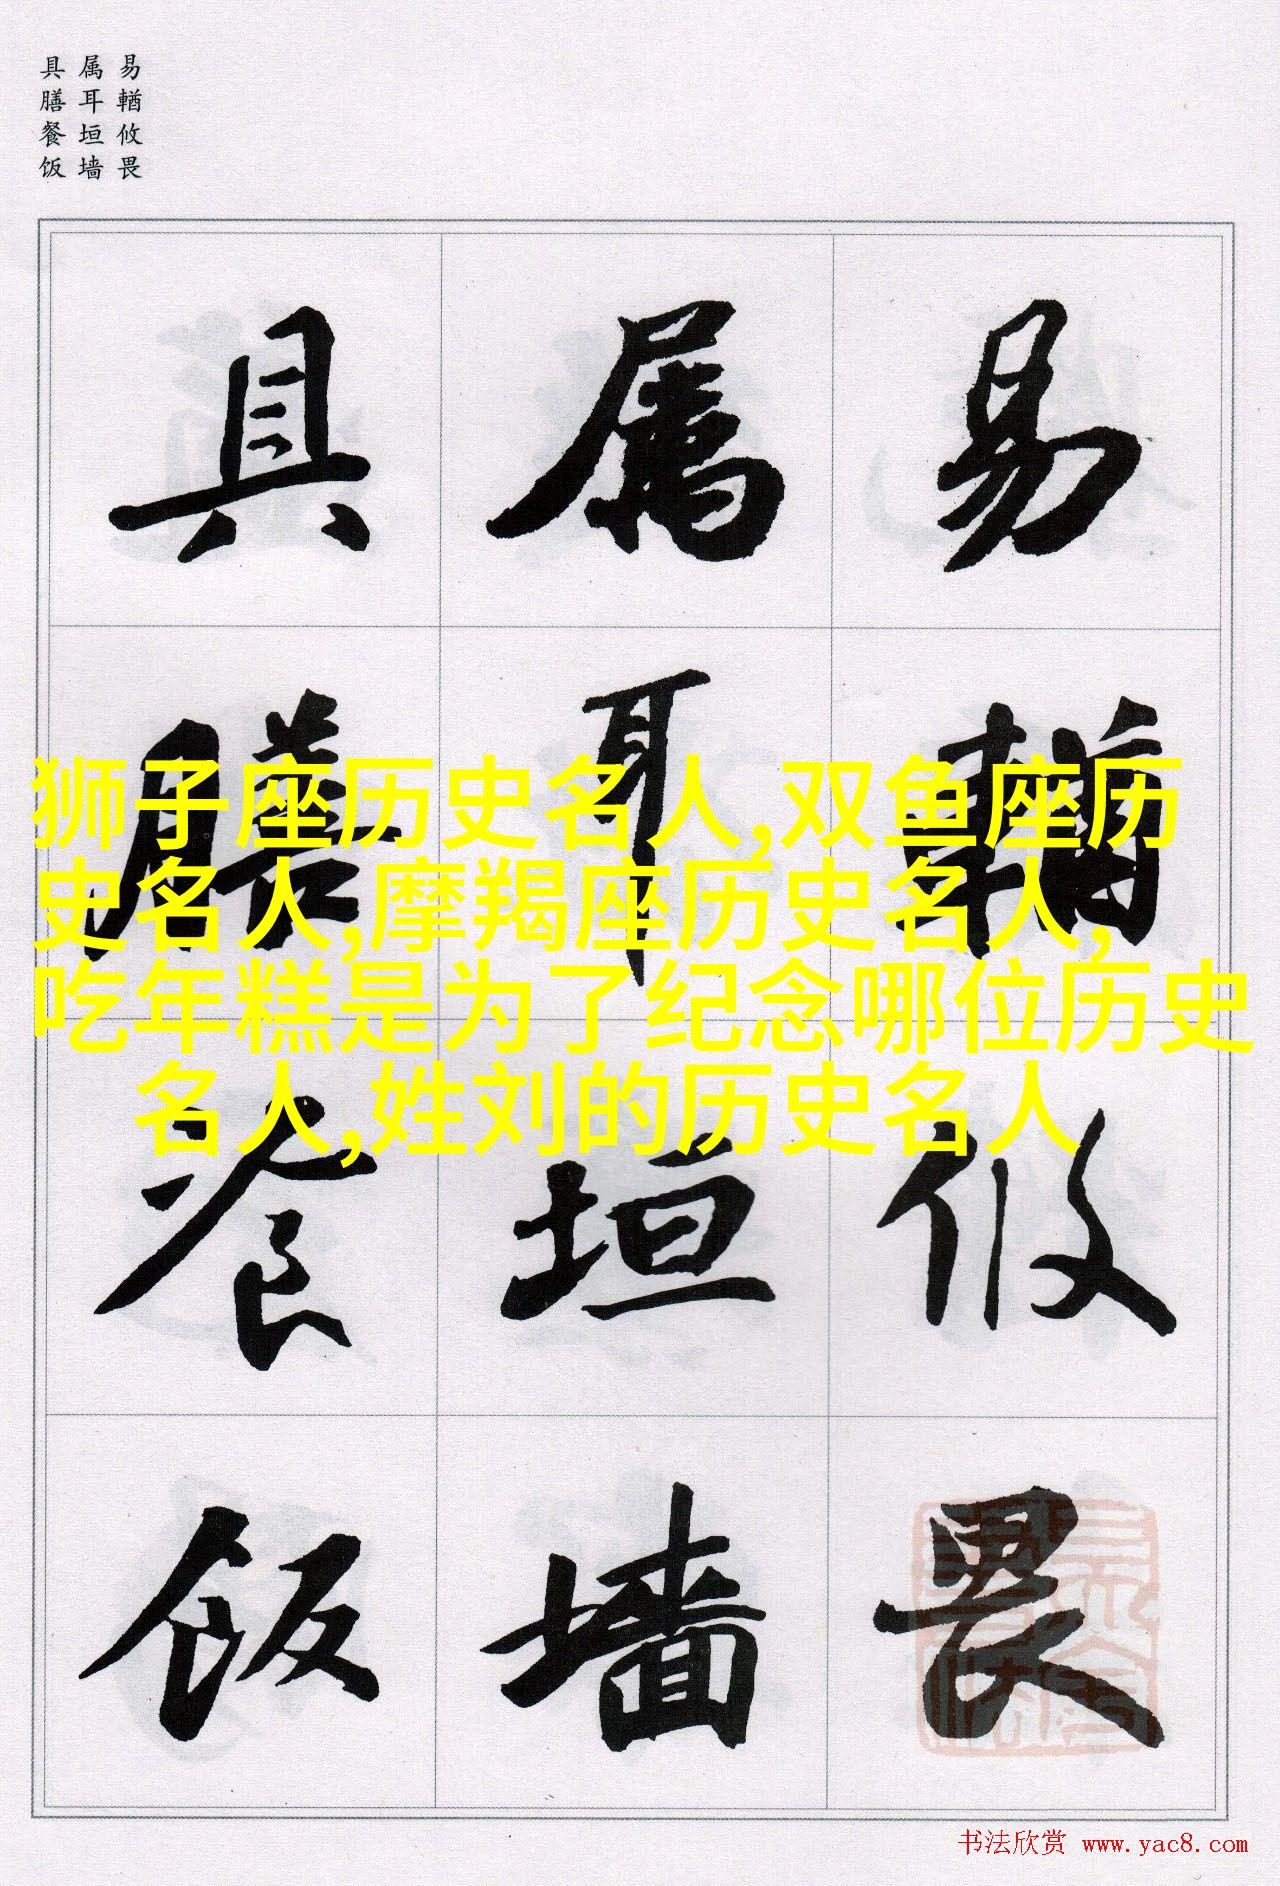 易輶攸畏
属耳垣墙
具膳餐饭
易輶攸畏
属耳垣墙
具膳餐饭
狮子座历史名人,双鱼座历
史名人,摩羯座历史名人,
吃年糕是为了纪念哪位历史
名人,姓刘的历史名人
书法欣赏 www.yac8.com